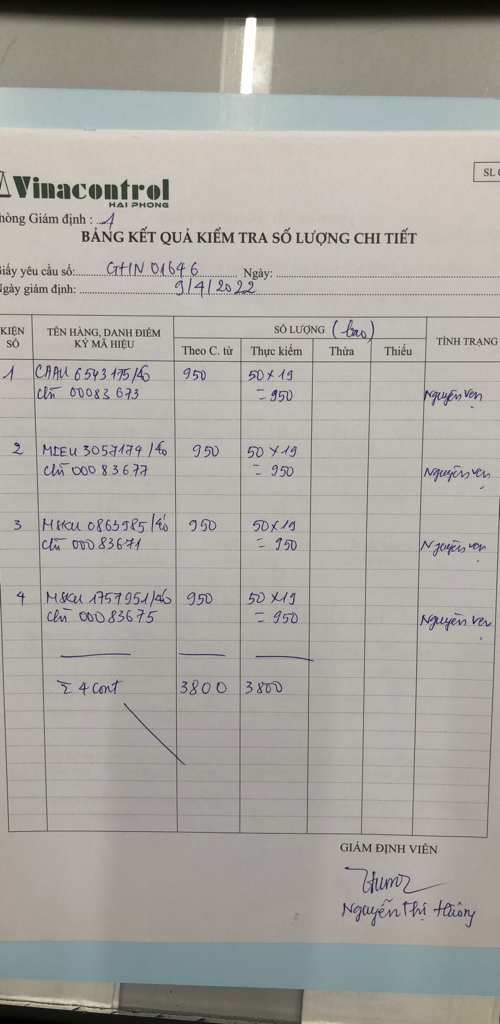 Vinacontrol
HẢI PHONG
SL
hòng Giám định : 1
BẢNG KẾT QUẢ KIỂM TRA SỐ LƯỢNG CHI TIẾT
Giấy yêu cầu số: GHN 01646 Ngày:
Ngày giám định: 9/4/2022
KIỆN SỐ TÊN HÀNG, DANH ĐIỂM KÝ MÃ HIỆU SỐ LƯỢNG (bao) TÌNH TRẠNG
Theo C. từ Thực kiểm Thừa Thiếu
1 CAAU 6543175/40 950 50×19
chì 00083673 = 950 Nguyên vẹn
2 MIEU 3057174/40 950 50×19
chì 00083677 = 950 Nguyên vẹn
3 MSKU 0863985/40 950 50×19
chì 00083671 = 950 Nguyên vẹn
4 MSKU 1757951/40 950 50×19
chì 00083675 = 950 Nguyên vẹn
Σ 4 cont 3800 3800
GIÁM ĐỊNH VIÊN
Nguyễn Thị Hường